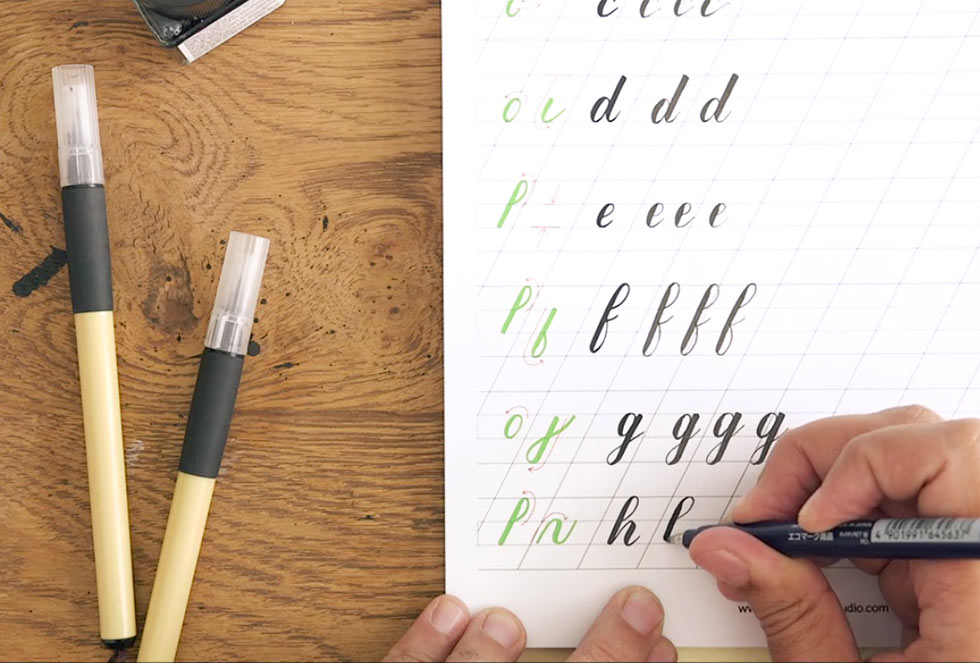 c c c c c
d d d d
e e e e
f f f f
g g g g
h
エコマーク商品
4 901991 645637
www
udio.com